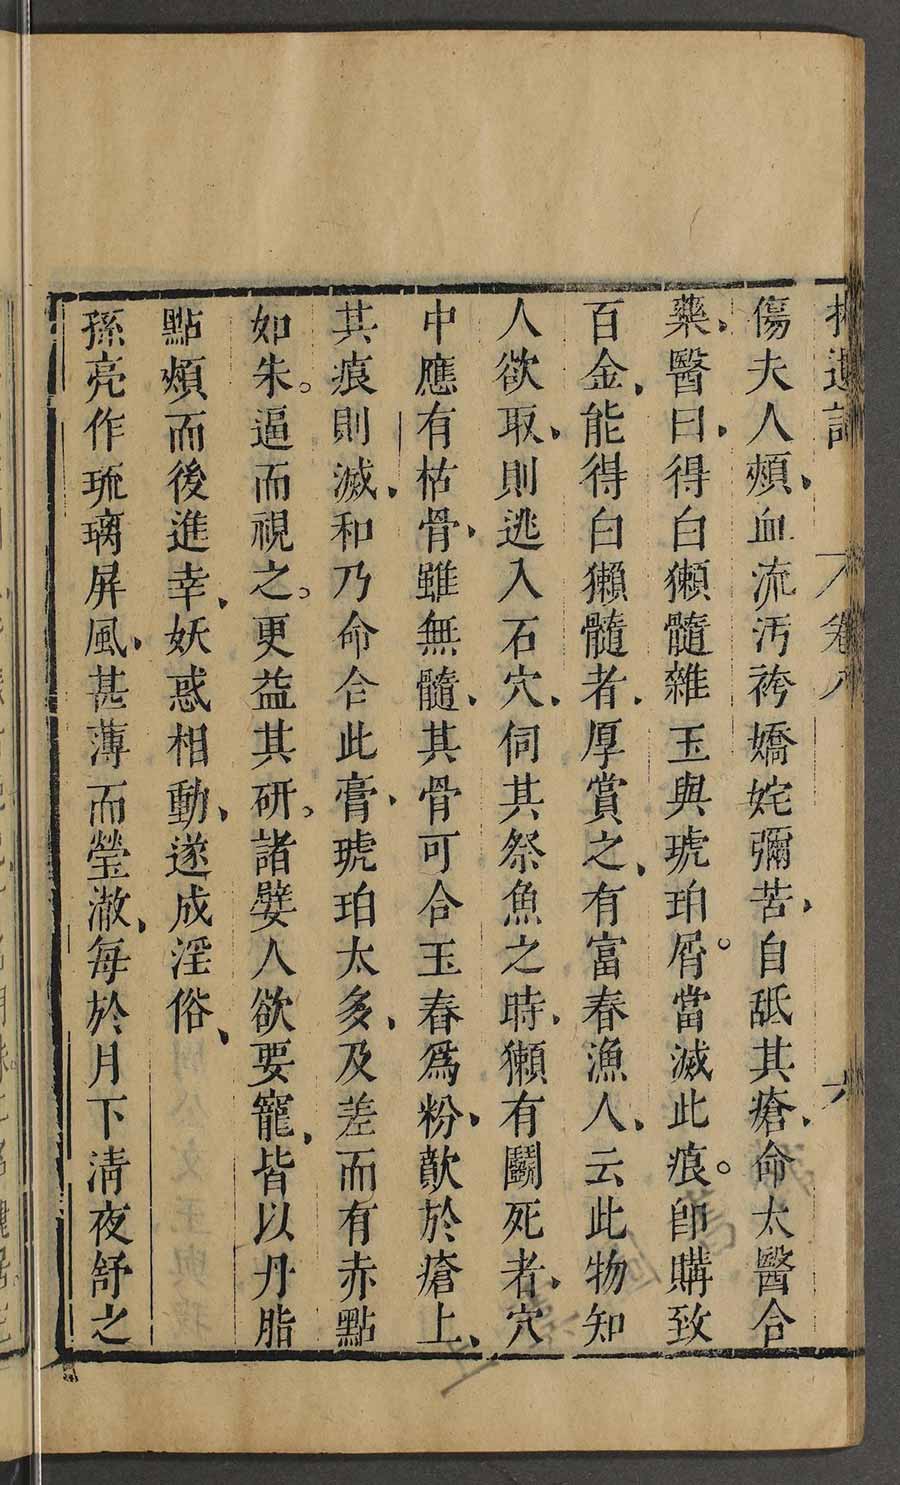 拾遺記 卷八 六
傷夫人頰、血流汚袴嬌姹彌苦、自舐其瘡、命太醫合
藥、醫曰、得白獺髓雜玉與琥珀屑。當滅此痕。卽購致
百金、能得白獺髓者、厚賞之、有富春漁人、云此物知
人欲取、則逃入石穴、伺其祭魚之時、獺有鬭死者、穴
中應有枯骨、雖無髓、其骨可合玉舂爲粉、歕於瘡上、
其痕則滅、和乃命合此膏、琥珀太多、及差而有赤點
如朱。逼而視之。更益其妍。諸嬖人欲要寵、皆以丹脂
點頰而後進幸、妖惑相動、遂成淫俗、
孫亮作琉璃屏風、甚薄而瑩澈、每於月下淸夜舒之